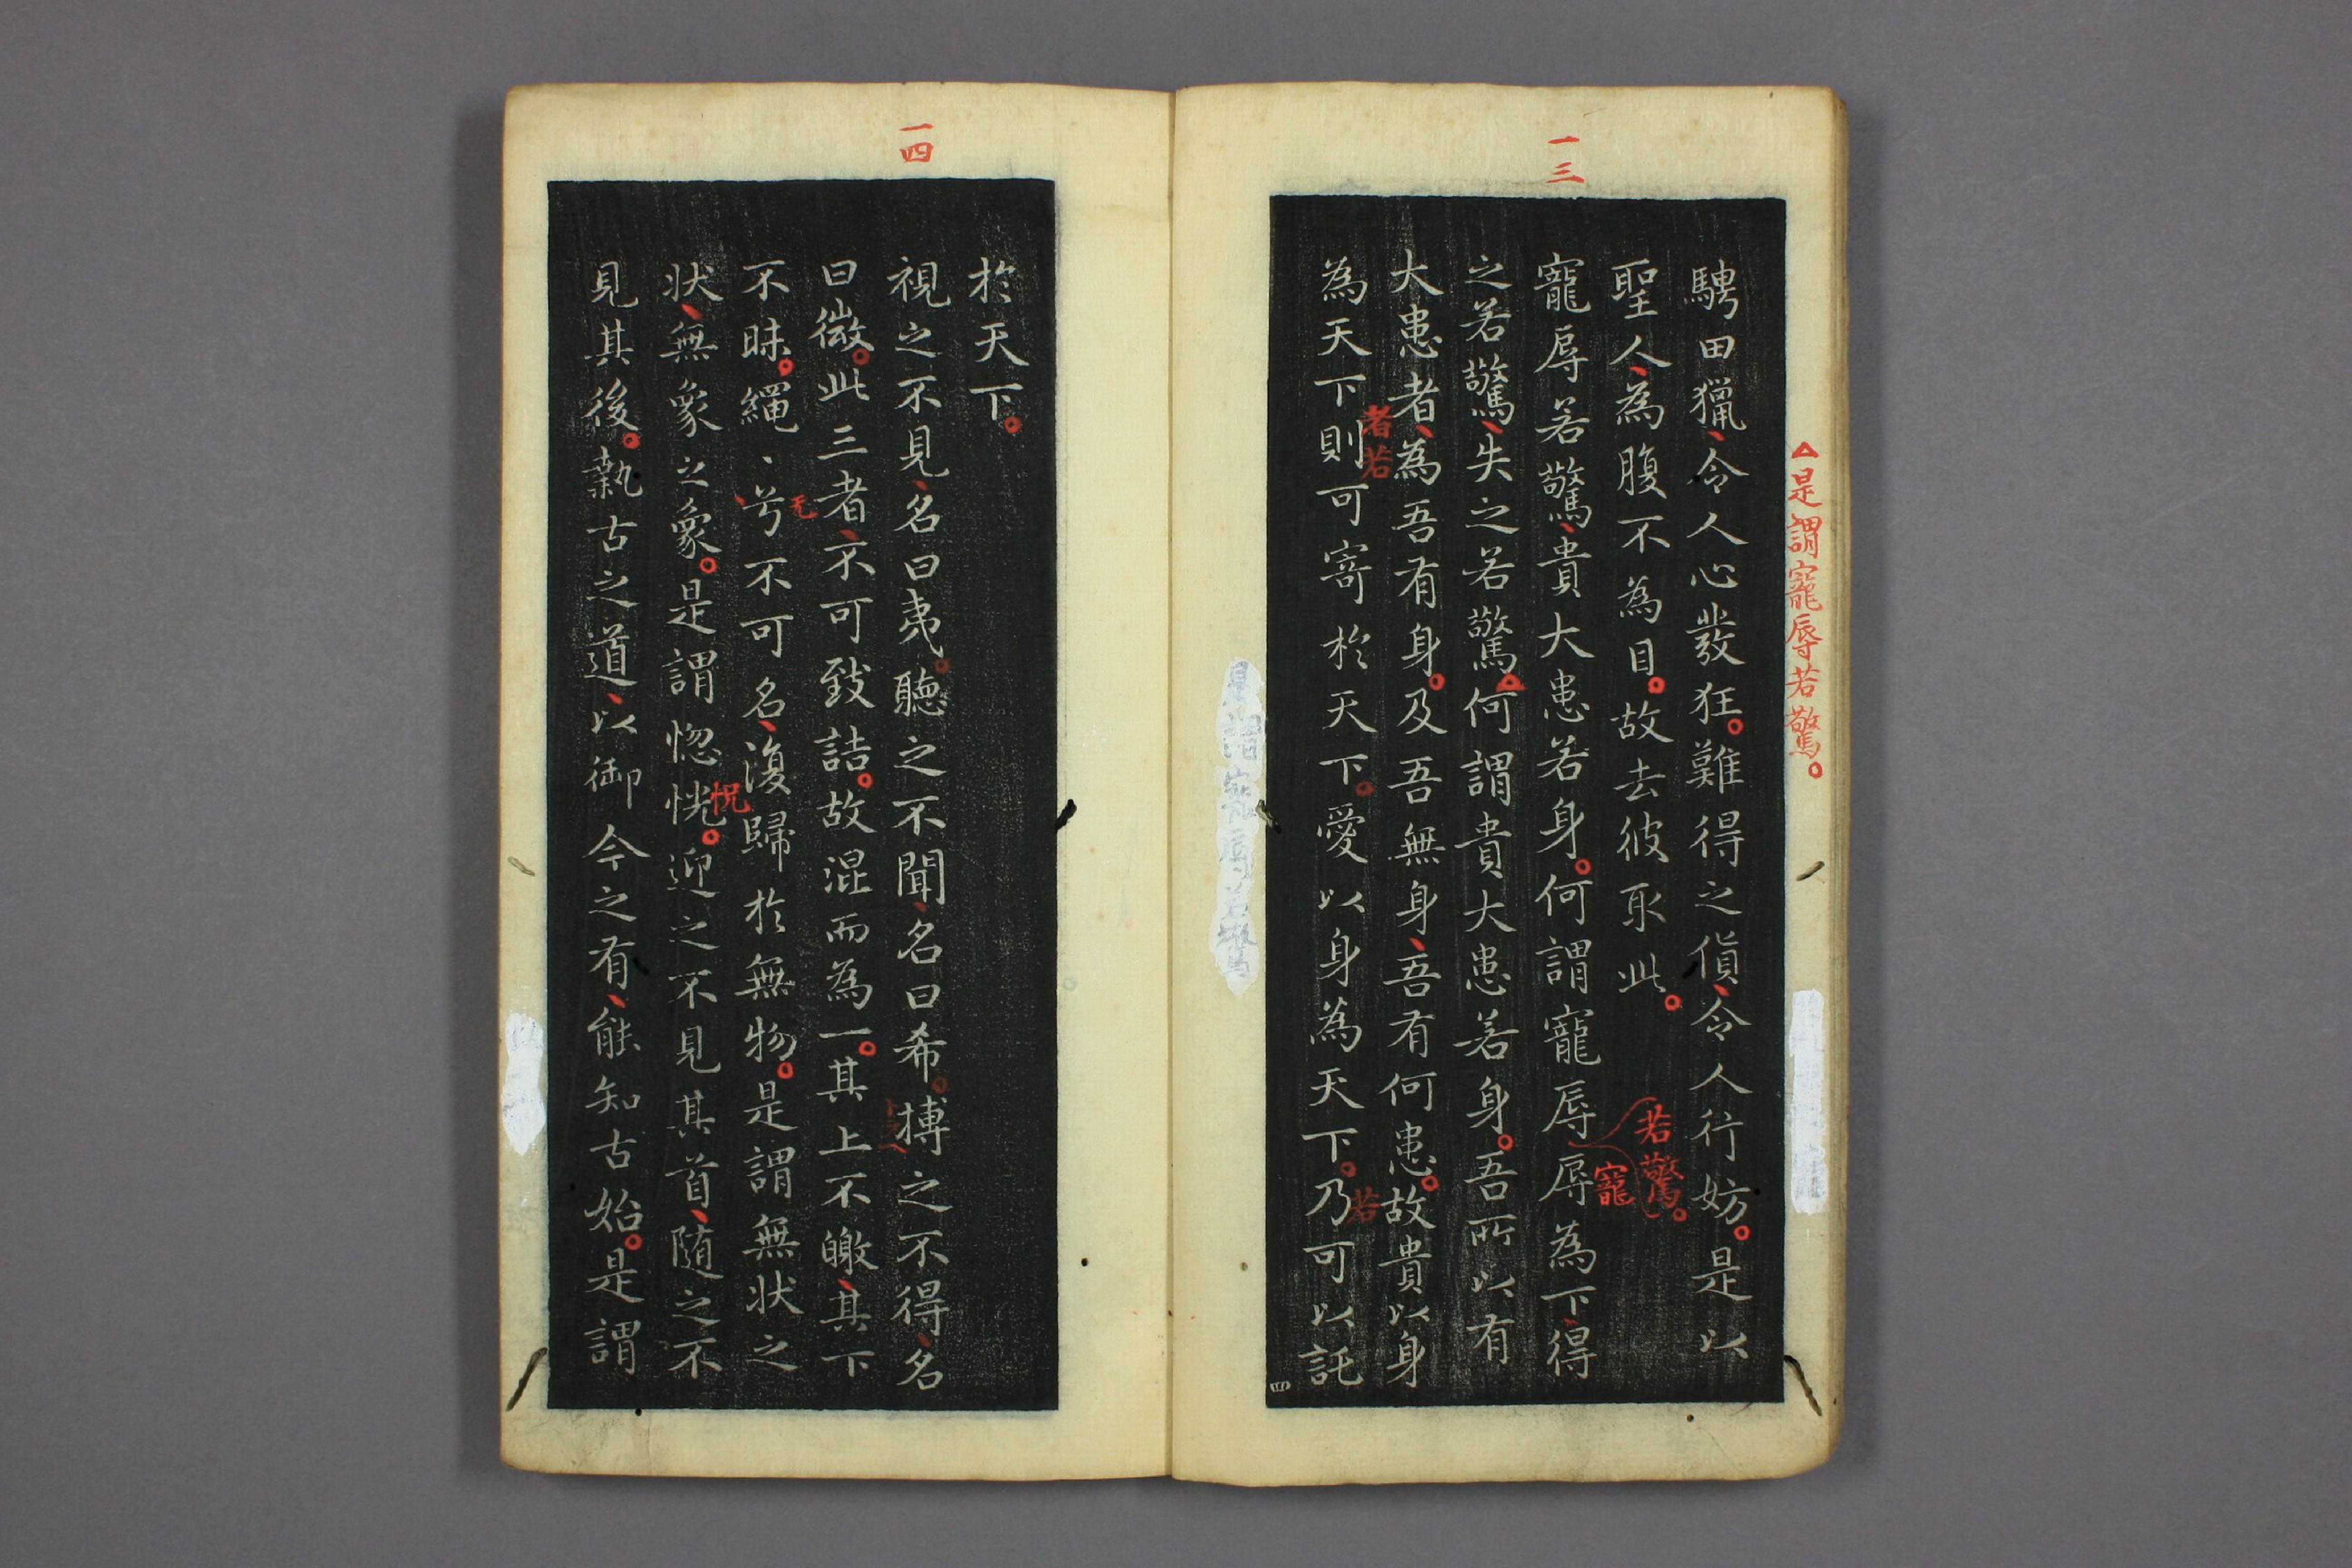 一三
騁田獵、令人心發狂。難得之貨、令人行妨。是以
聖人、為腹不為目。故去彼取此。
寵辱若驚、貴大患若身。何謂寵辱辱為下、得
若驚。
寵
之若驚、失之若驚△何謂貴大患若身。吾所以有
大患者、為吾有身。及吾無身、吾有何患。故貴以身
者若
為天下則可寄於天下。愛以身為天下。乃可以託
若
△是謂寵辱若驚。
一四
於天下。
視之不見、名曰夷。聽之不聞、名曰希。搏之不得、名
曰微。此三者、不可致詰。故混而為一。其上不皦、其下
不昧。繩、兮不可名、復歸於無物。是謂無狀之
无
狀、無象之象。是謂惚恍。迎之不見其首、随之不
怳
見其後。執古之道、以御今之有、能知古始。是謂